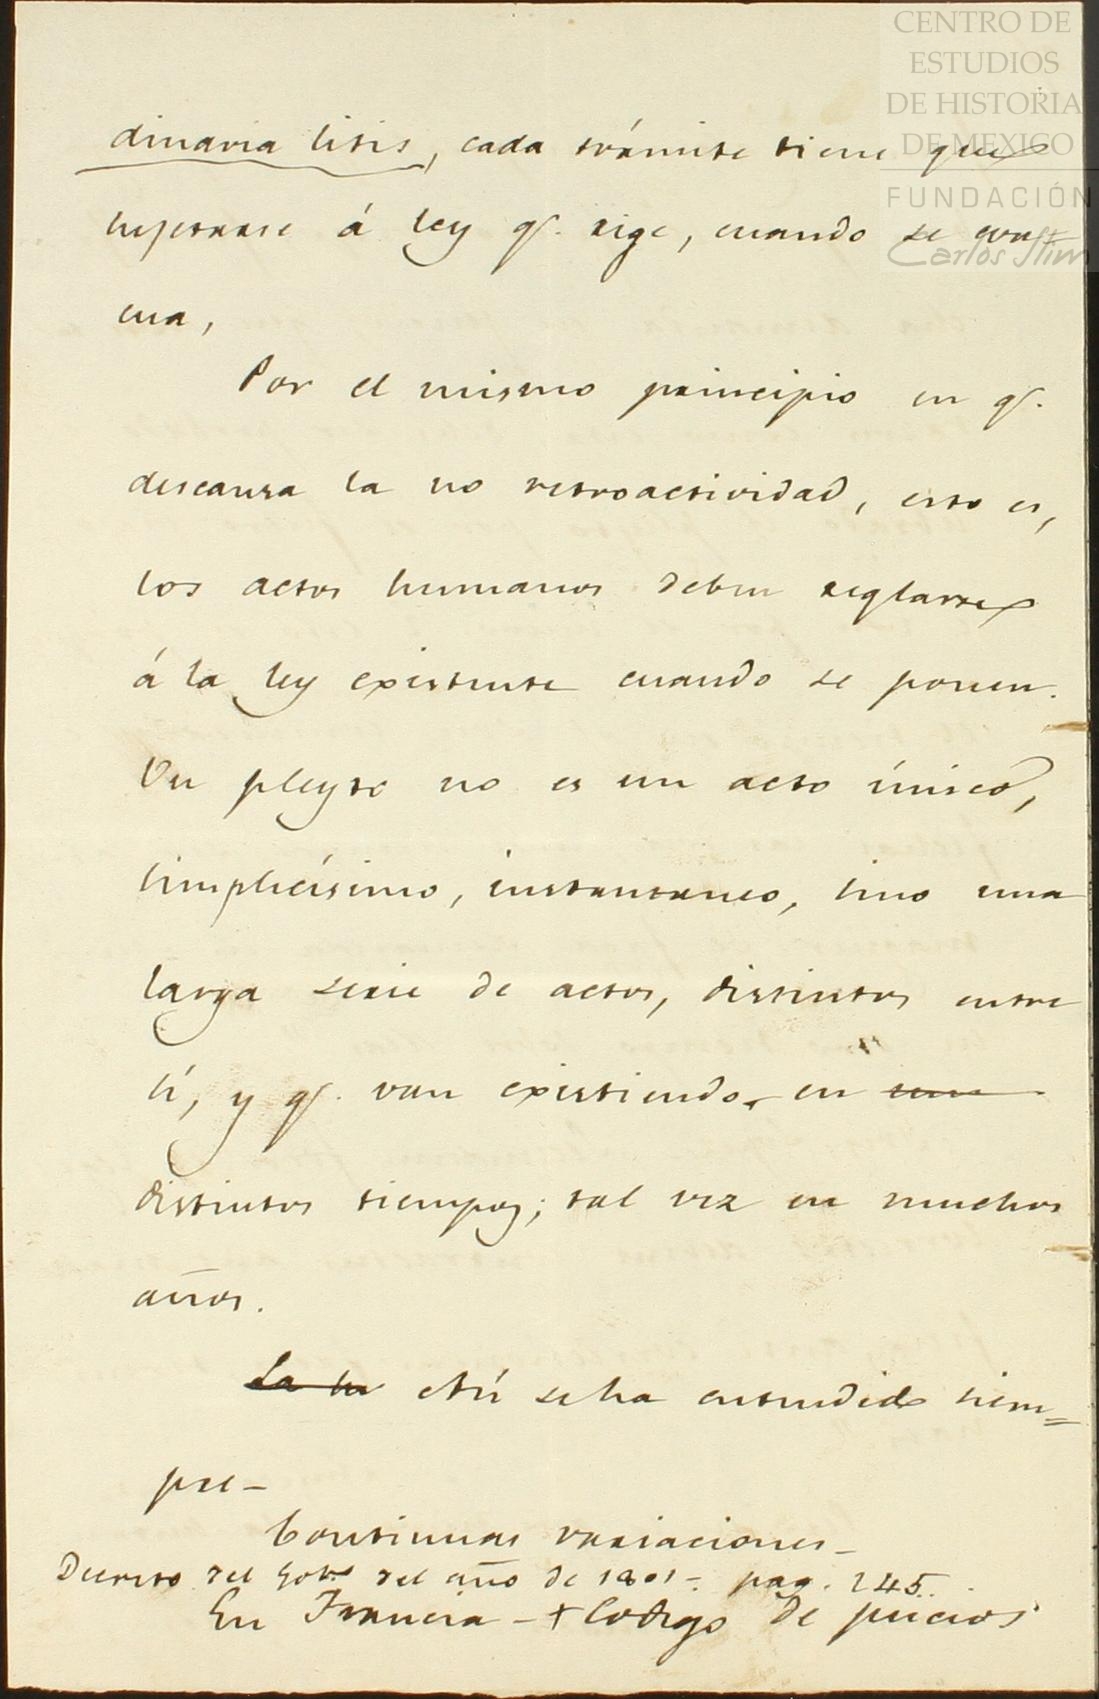 CENTRO DE
ESTUDIOS
DE HISTORIA
DE MEXICO
FUNDACIÓN
Carlos Slim
dinaria litis, cada trámite tiene que
sujetarse á ley q. rige, cuando se eva
cua,
Por el mismo principio en q.
descansa la no retroactividad, esto es,
los actos humanos deben reglarse
á la ley existente cuando se ponen.
Un pleyto no es un acto único,
simplicísimo, instantaneo, sino una
larga serie de actos, distintos entre
sí, y q. van existiendo, en
distintos tiempos; tal vez en muchos
años.
La la Así se ha entendido siem=
pre-
Continuas variaciones-
Decreto del Gob.no del año de 1801-. pag. 245.
En Francia - + Codigo de juicios